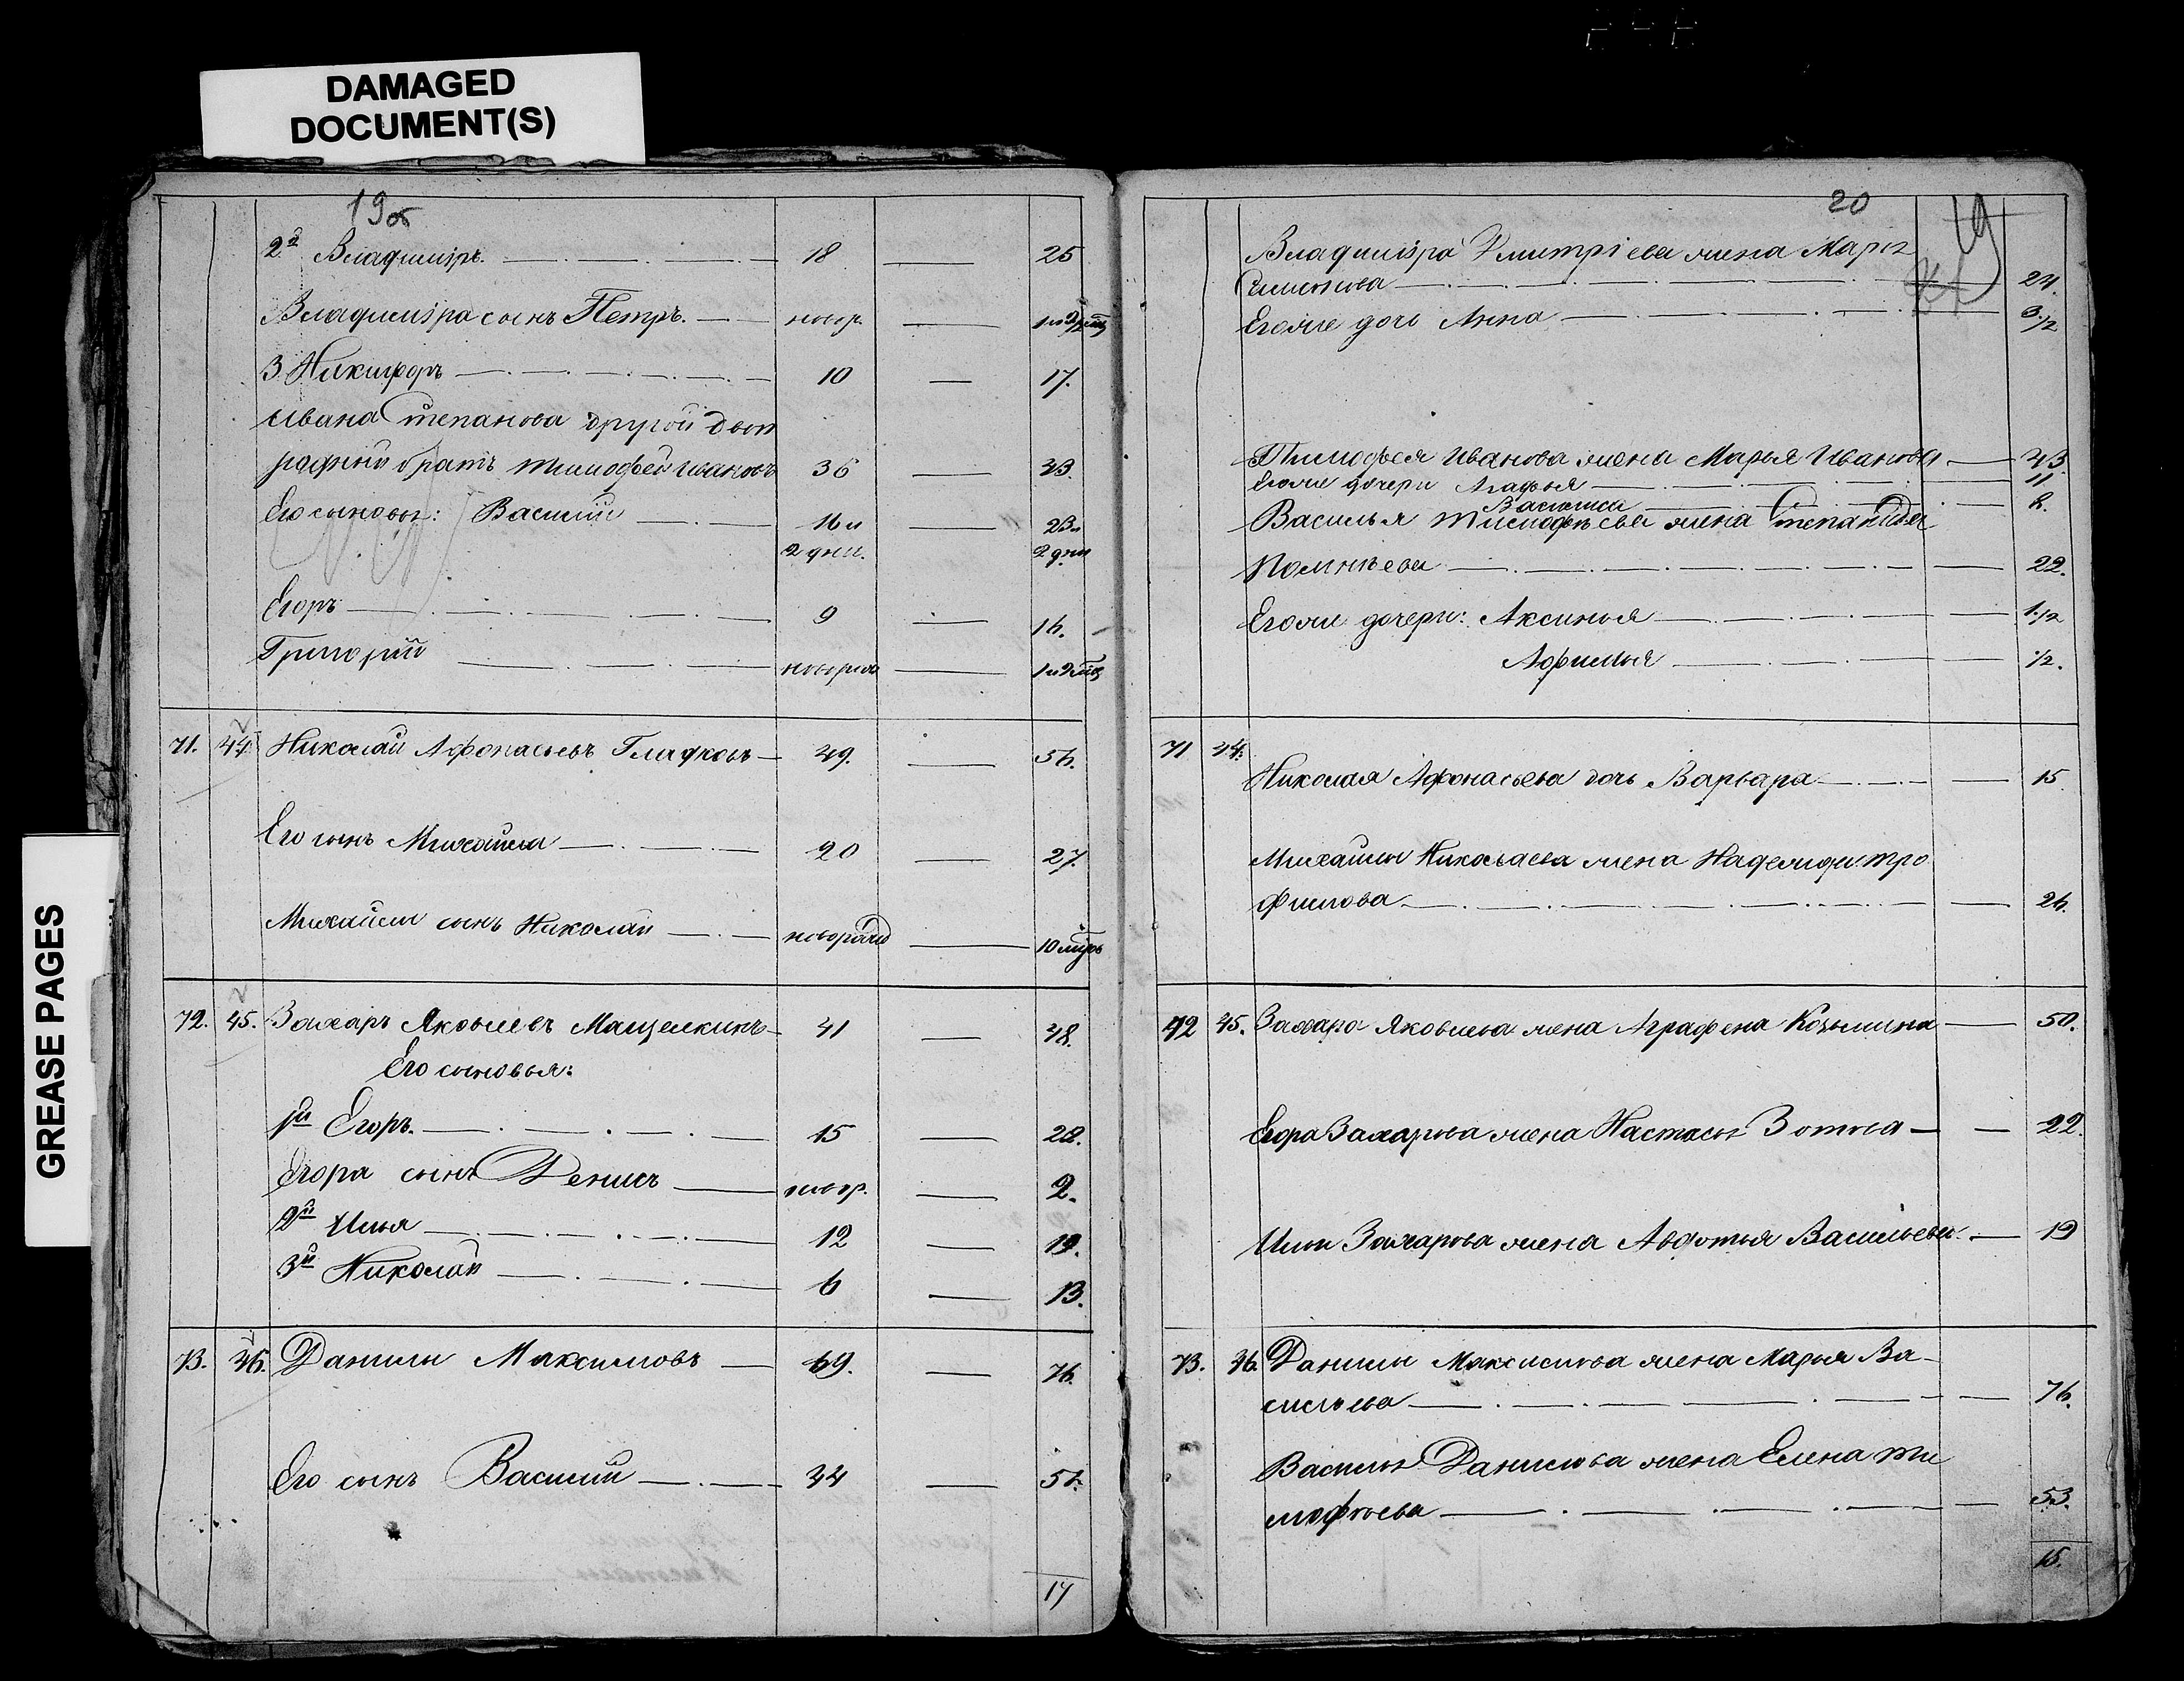 DAMAGED
DOCUMENT(S)
GREASE PAGES
19об
2й Владиміръ. 18 25
Владиміра сынъ Петръ. новор.
3 Никифоръ 10 17.
Ивана Степанова другой двою
родный братъ Тимофей Ивановъ 36 43.
Его сыновья: Василий 16 и 23 и
2 дни. 2 дни
Егоръ 9 16.
Григорій
71. 44. Николай Афонасьевъ Гладковъ 49. 56.
Его сынъ Михайла 20 27.
Михайлы сынъ Николай 10
72. 45. Захаръ Яковлевъ 41 48.
Его сыновья:
1й Егоръ. 15 22.
Егора сынъ Денисъ новор. 2.
2й Илья 12 19.
3й Николай 6 13.
73. 46. Данилы Максимовъ 69. 76.
Его сынъ Василий 44 51.
17
20
19
Владиміра Дмитріева жена Марья
24.
Его же дочь Анна 3 1/2
Тимофея Иванова жена Марья Иванова 43.
Его же дочери Агафья 11
Василиса
Василья Тимофѣева жена Степанида
22.
Его же дочери: Аксинья 1 1/2
Афимья 1/2.
71 44.
Николая Афонасьева дочь Варвара 15
Михайлы Николаева жена Надежда Тро
фимова 26.
72 45. Захара Яковлева жена Аграфена Козьмина 50.
Егора Захарова жена Настасья Зотова 22.
Ильи Захарова жена Авдотья Васильева 19
73. 46. Данилы Максимова жена Марья Ва-
сильева 76.
Василья Данилова жена Елена Ти
мофѣева 53.
15.